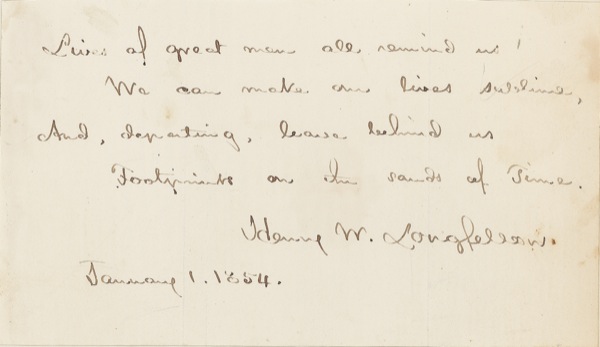 Lives of great men all remind us
We can make our lives sublime,
And, departing, leave behind us
Footprints on the sands of Time.
Henry W. Longfellow.
January 1. 1854.